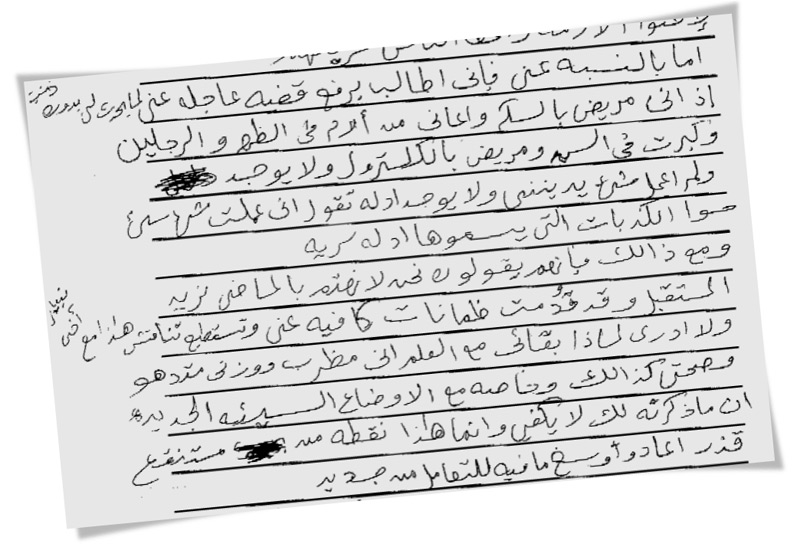 اما بالنسبه عني فإني اطالب برفع قضيه عاجله عني
إذ اني مريض بالسكر واعاني من ألام في الظهر والرجلين
وكبرت في السن ومريض بالكلسترول ولا يوجد
ولم اعمل شئ يدينني ولا يوجد ادله تقول اني عملت شئ سيئ
سوا الكذبات التي يسموها ادله سريه
ومع ذالك فإنهم يقولون نحن لا نهتم بالماضي نريد
المستقبل وقد قدمت ظمانات كافيه عني وتستطيع تناقش هذا مع أخي
ولا ادري لماذا بقائي مع العلم اني مظرب ووزني متدهو
وصحتي كذالك وخاصه مع الاوضاع السيئه الجديده
ان ماذكرته لك لا يكفي وانما هذا نقطه من مستنقع
قذر اعادو أوسخ مافيه للتعامل من جديد